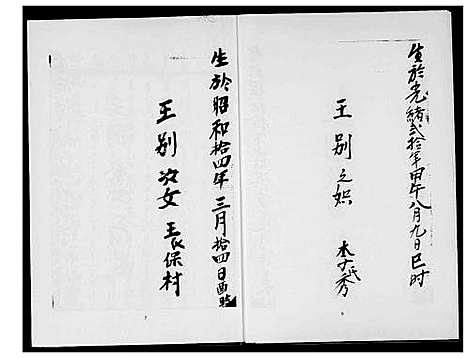 生於光緒弍拾年甲午八月九日巳時
王別之媳
李氏秀
生於昭和拾四年三月拾四日酉時
王別次女
王氏保村